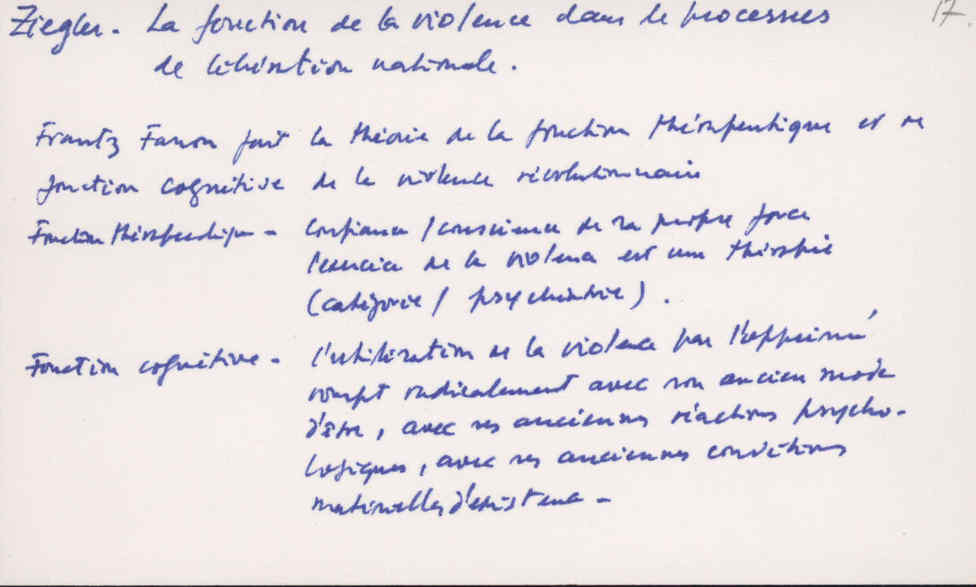 Ziegler. La fonction de la violence dans le processus
17.
de libération nationale.
Frantz Fanon fait la théorie de la fonction thérapeutique et de
fonction cognitive de la violence révolutionnaire
Fonction thérapeutique - Confiance / conscience de sa propre force
l'exercice de la violence est une thérapie
(catégorie / psychiatrie).
Fonction cognitive - l'utilisation de la violence par l'opprimé
rompt radicalement avec son ancien mode
d'être, avec ses anciennes réactions psycho-
logiques, avec ses anciennes conditions
matérielles d'existence -